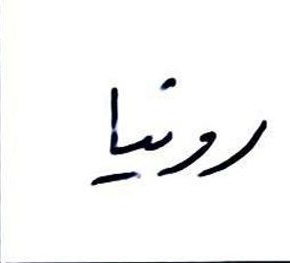 رونیا